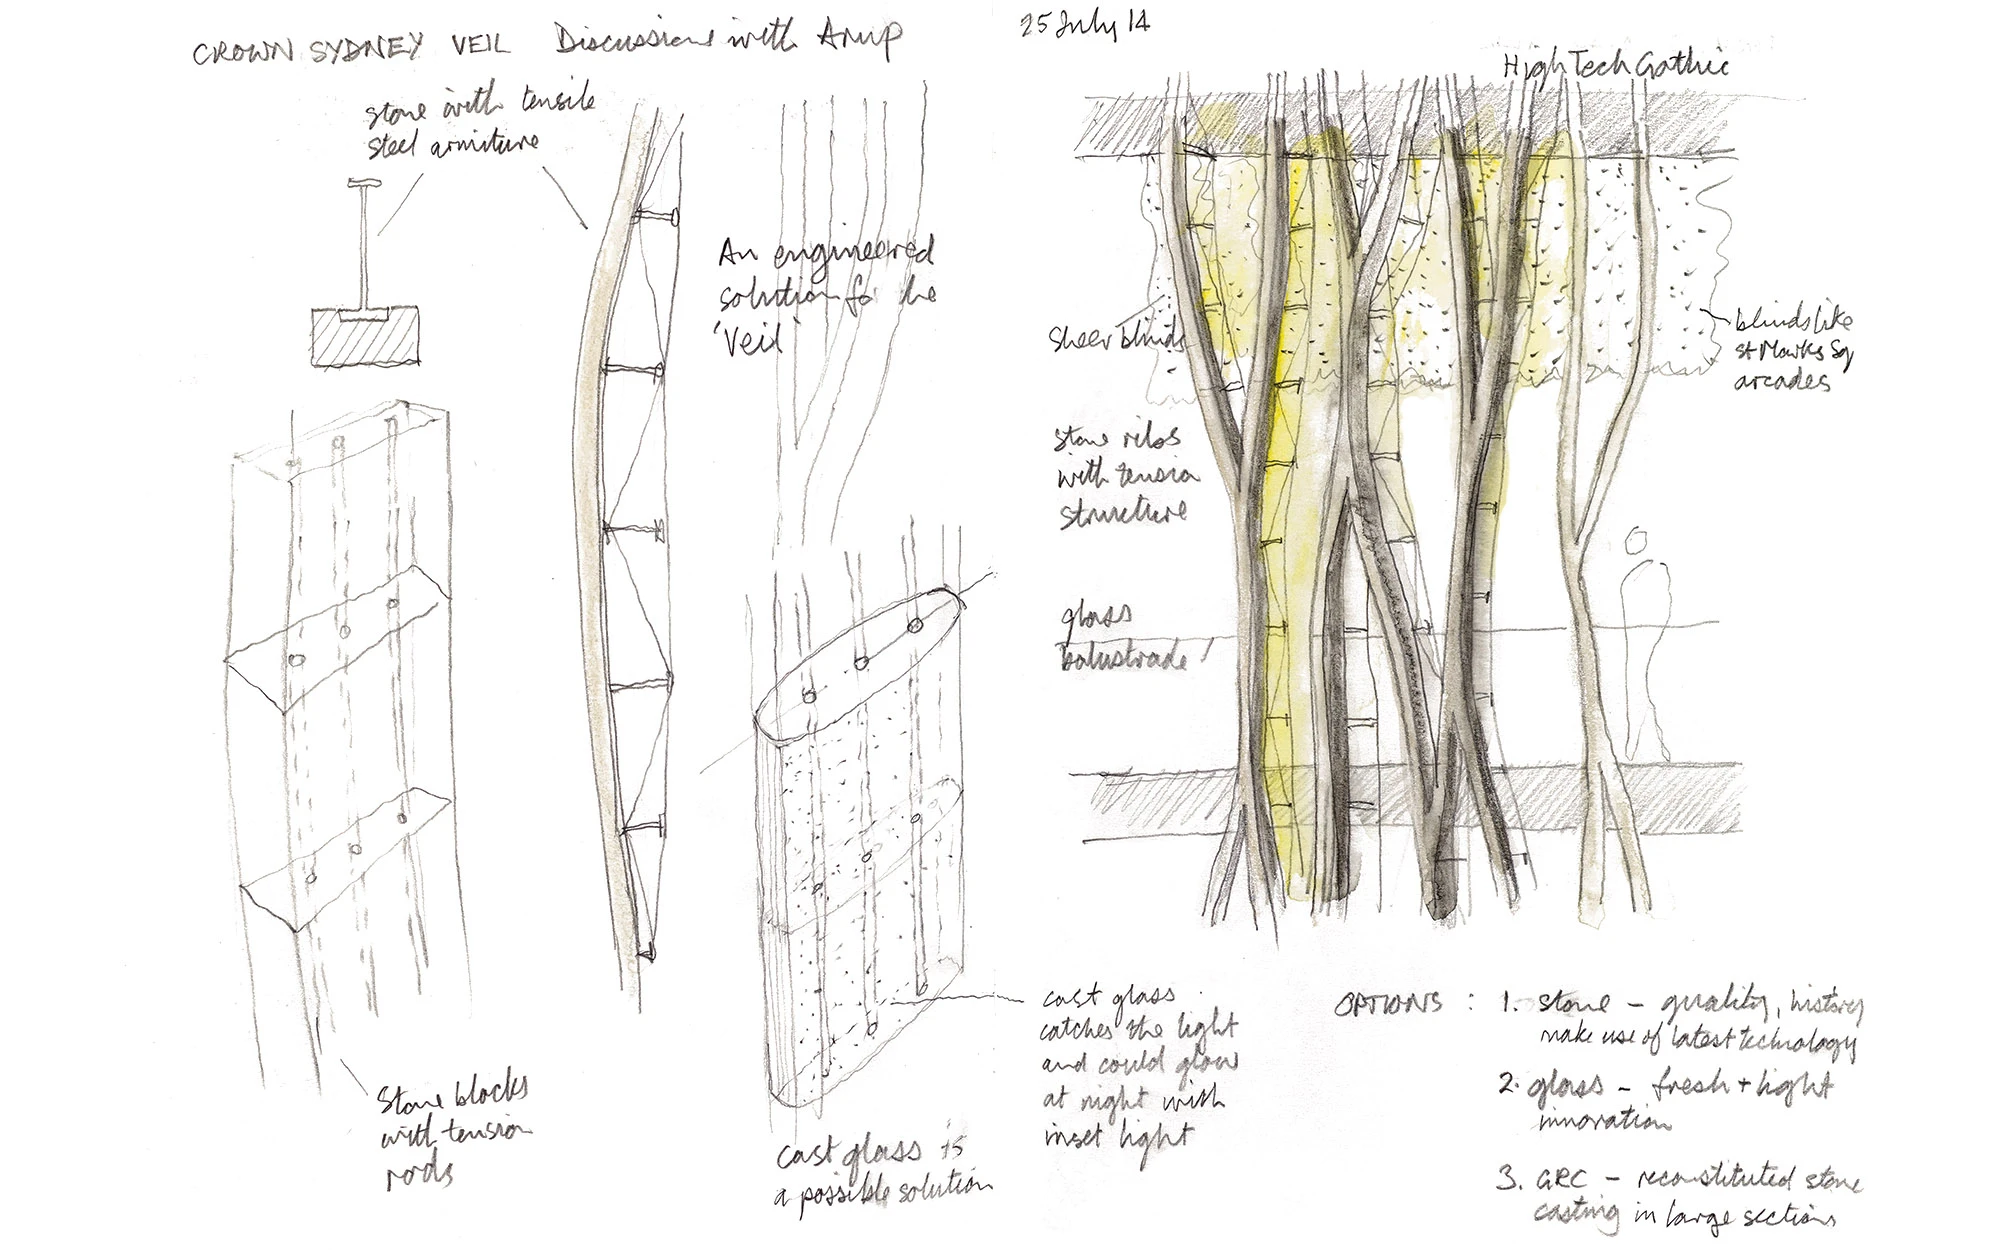 CROWN SYDNEY VEIL Discussions with Arup
25 July 14
stone with tensile
steel armiture
An engineered
solution for the
'Veil'
Stone blocks
with tension
rods
cast glass is
a possible solution
cast glass
catches the light
and could glow
at night with
inset light
High Tech Gothic
sheer blinds
blinds like
St Marks Sq
arcades
stone ribs
with tension
structure
glass
balustrade
OPTIONS : 1. stone – quality, history
make use of latest technology
2. glass – fresh + light
innovation
3. GRC – reconstituted stone
casting in large sections